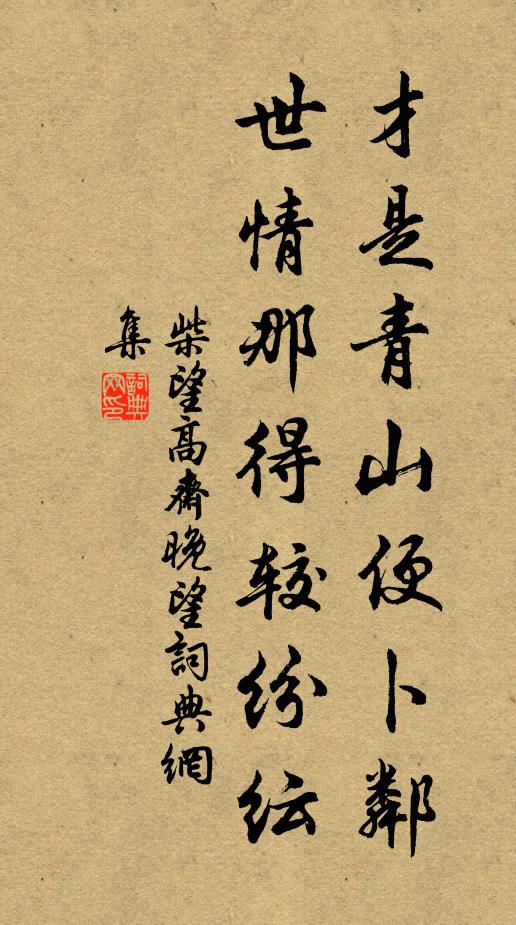 才是青山便卜鄰
世情那得較紛紜
柴望高齋晚望詞典網
集
詞典網印